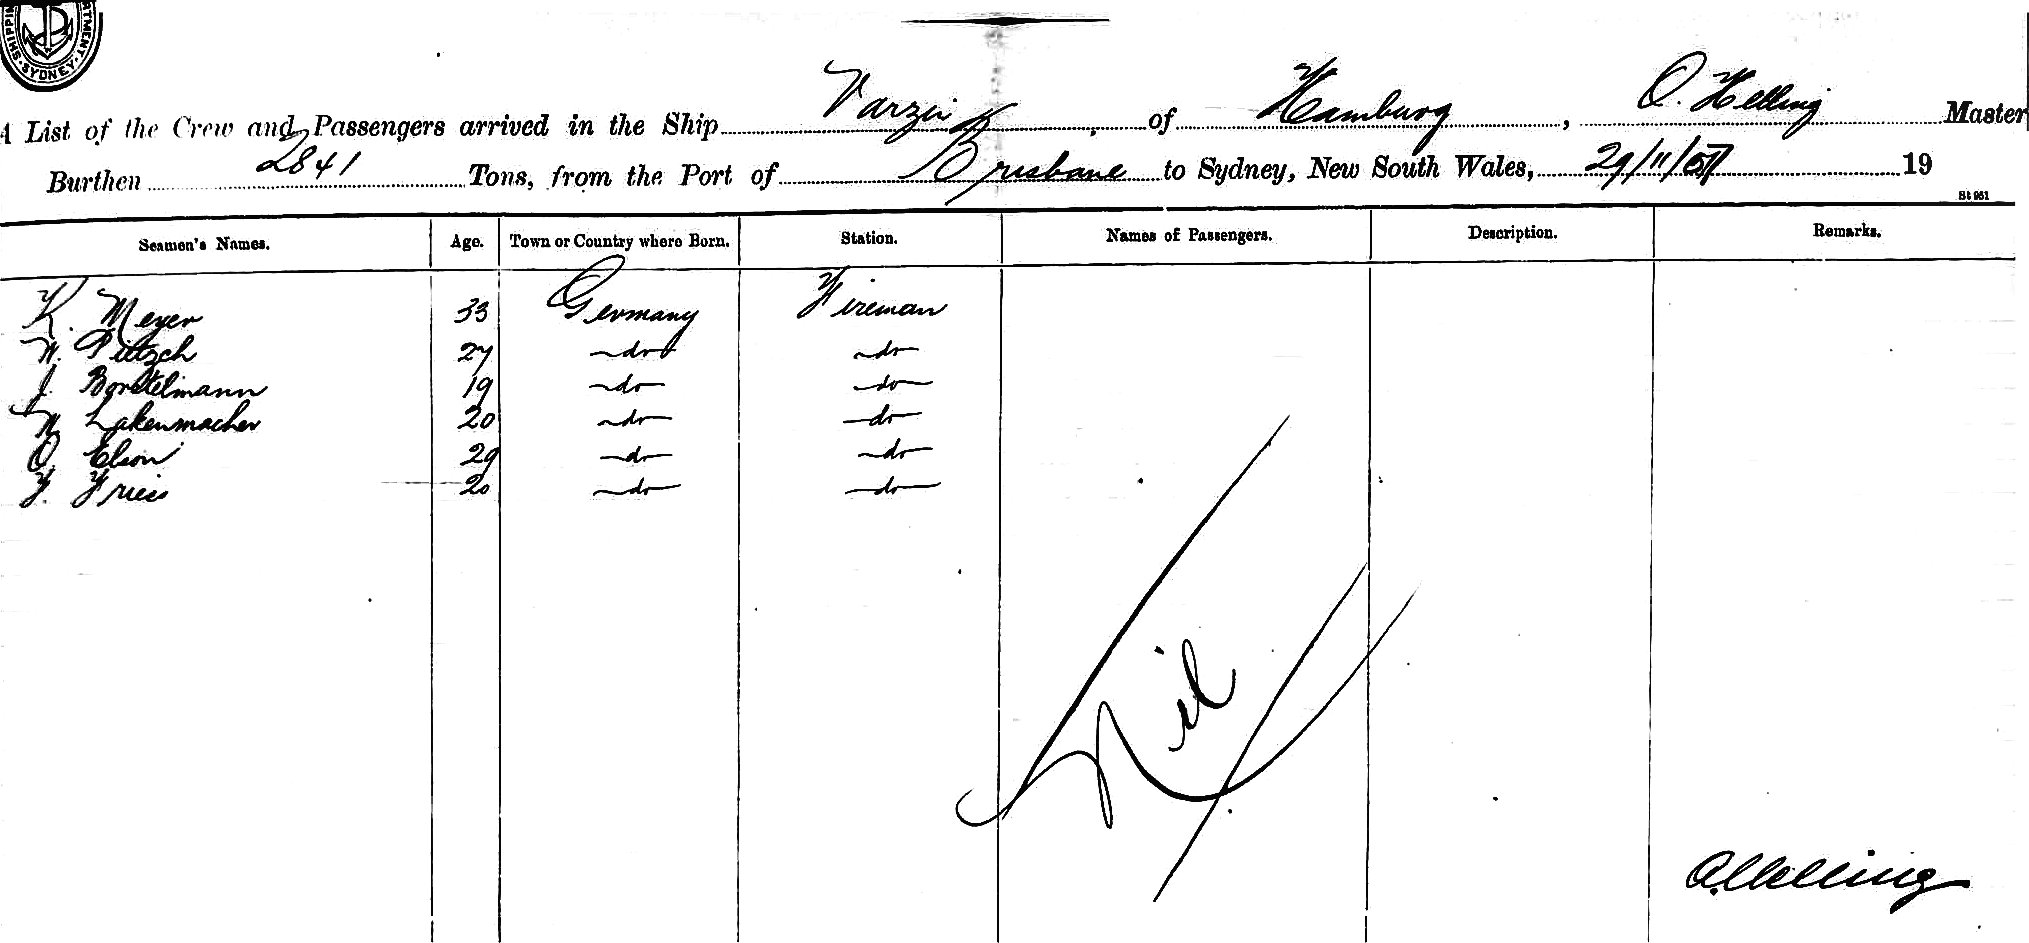 SHIPPING DEPARTMENT. SYDNEY.
A List of the Crew and Passengers arrived in the Ship Varzin of Hamburg, O. Helling Master
Burthen 2841 Tons, from the Port of Brisbane to Sydney, New South Wales, 29/11/07 19
St 961
Seamen's Names. Age. Town or Country where Born. Station. Names of Passengers. Description. Remarks.
K. Meyer 33 Germany Fireman
W. Pietzsch 27 -do- -do-
J. Borstelmann 19 -do- -do-
W. Lakenmacher 20 -do- -do-
O. Elson 29 -do- -do-
F. Friess 20 -do- -do-
Nil
O. Helling